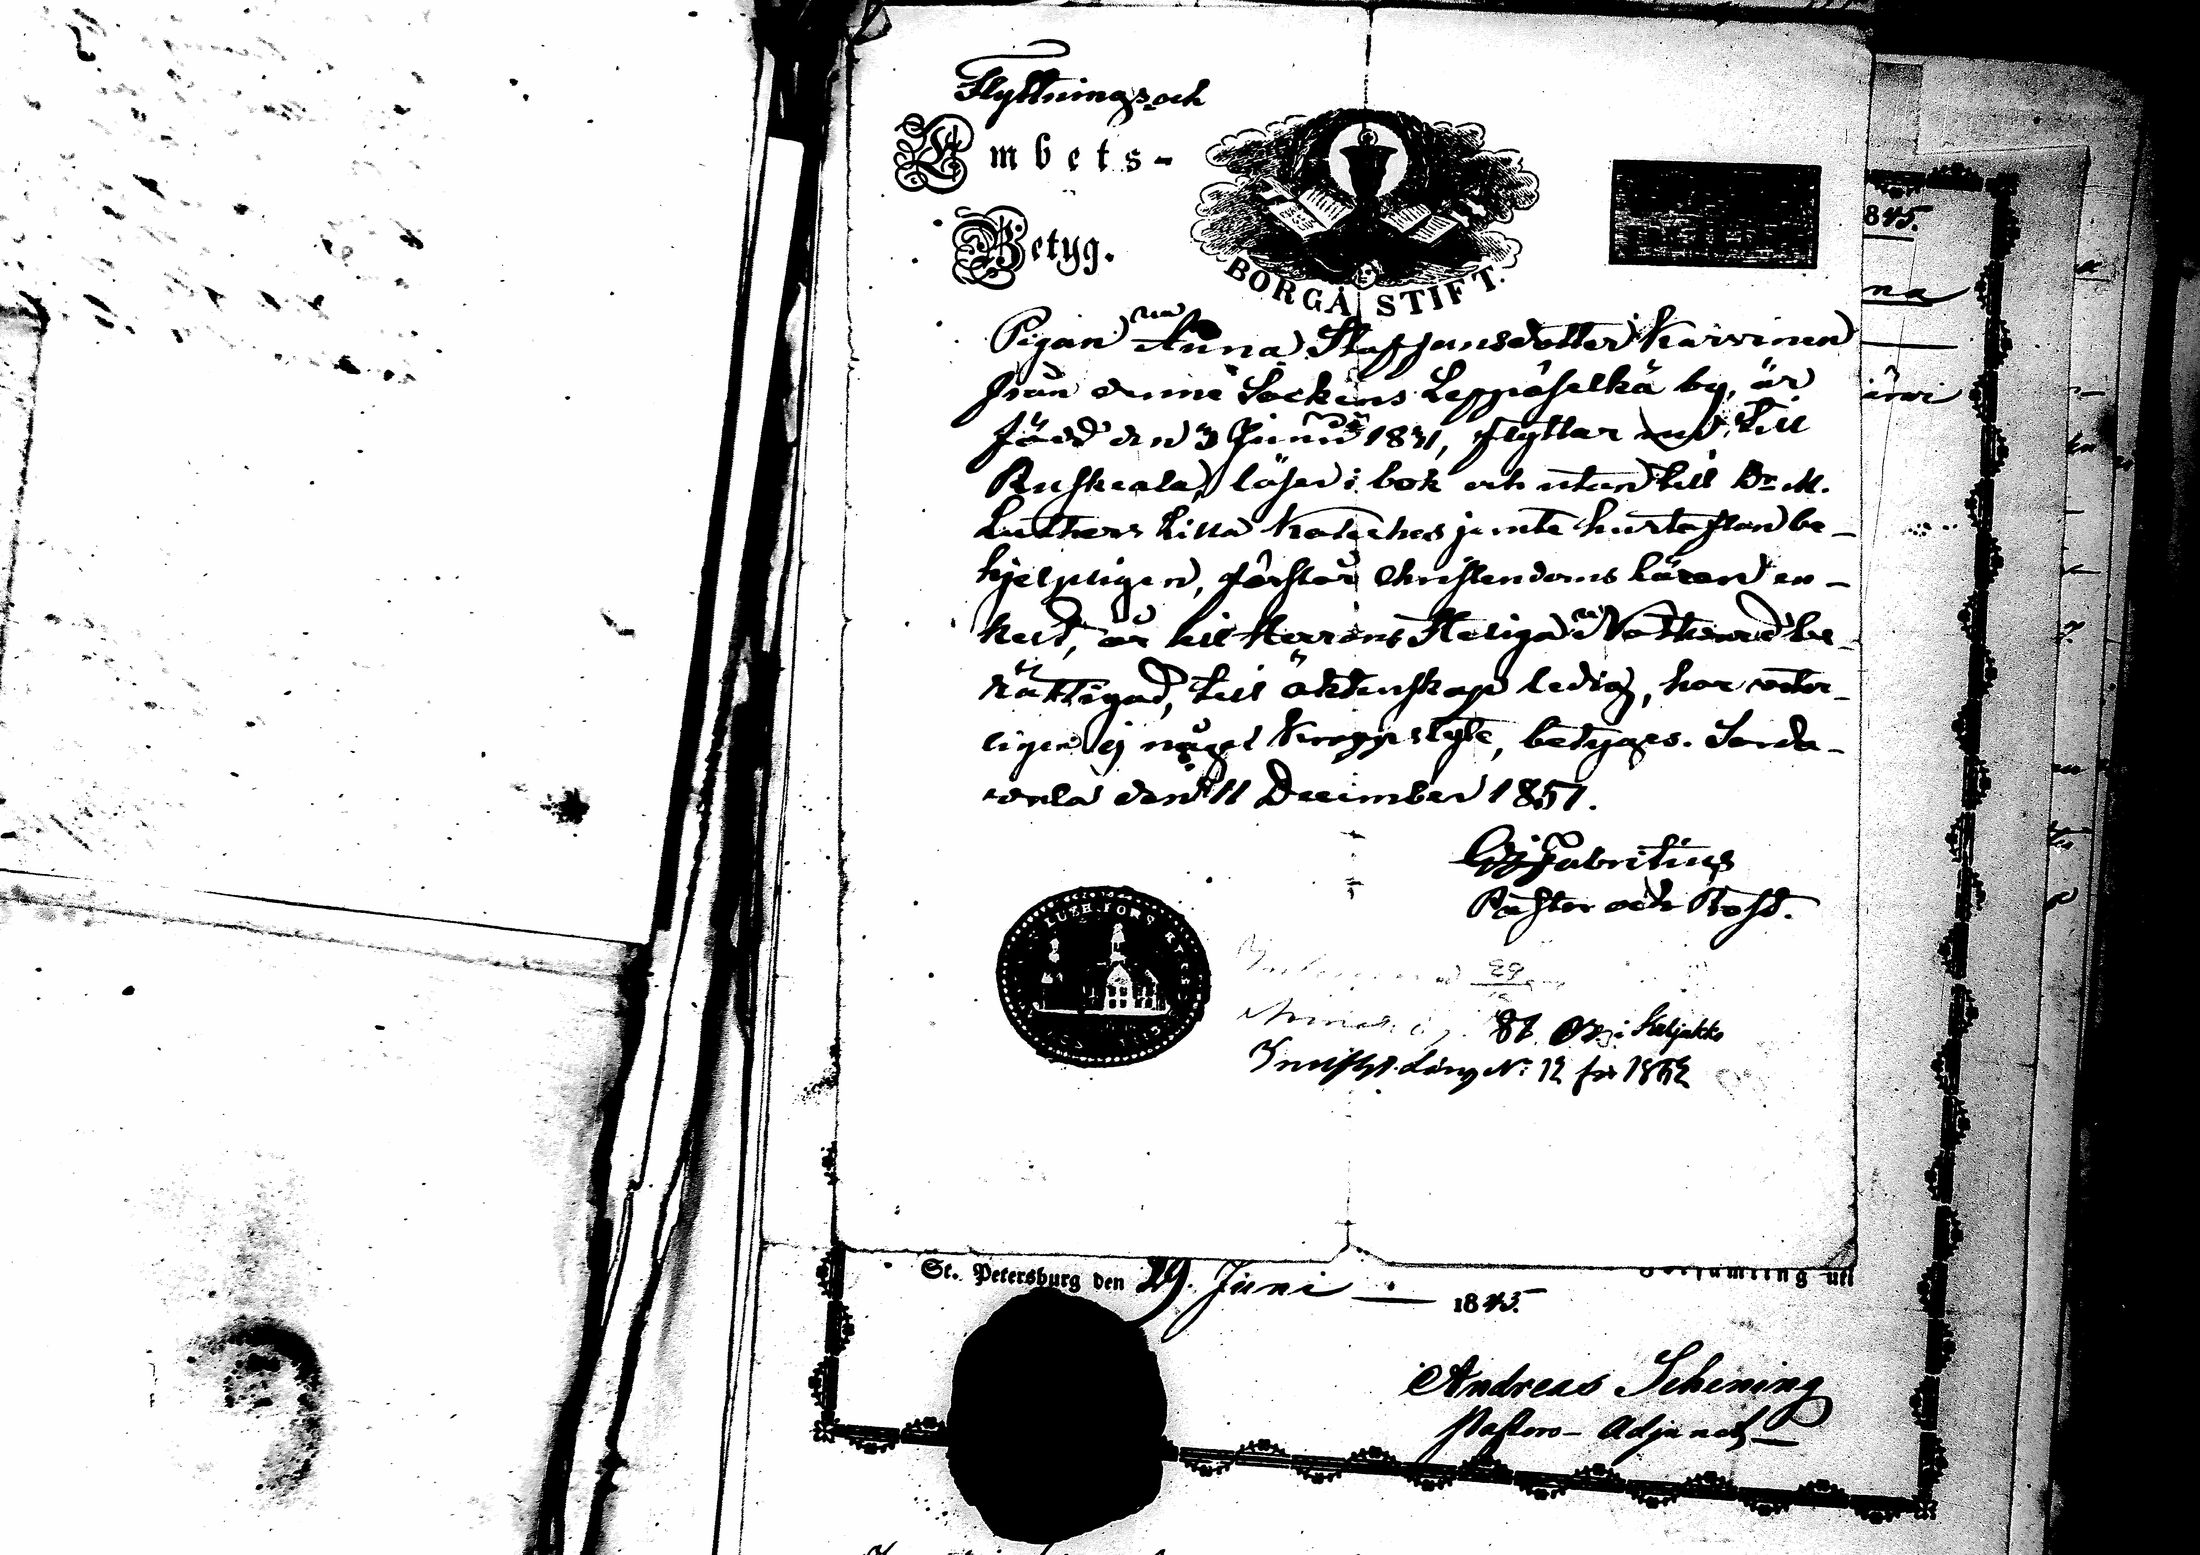 Flyttnings och
Embets-
Betyg.
BORGÅ STIFT.
Pigan Anna Staffansdotter Karvinen
från denne Sockens Leppäselkä by, är
född den 3 Junii 1831, flyttar nu till
Ruskeala, läser i bok och utantill Dr M.
Luthers Lilla Kateches jemte hustaflan be-
hjelpligen, förstår Christendoms läran en-
kelt, är till Herrans Heliga Nattvard be-
rättigad, till äktenskap ledig, har veter-
ligen ej något kroppslyte, betygas. Sorda-
vala den 11 December 1851.
Fabritius
Pastor och Prost.
29
i Kaljakko
N: 12 för 1852
St. Petersburg den 29. Juni 1845.
Andreas Schening
Pastors-Adjunct
1845.
na